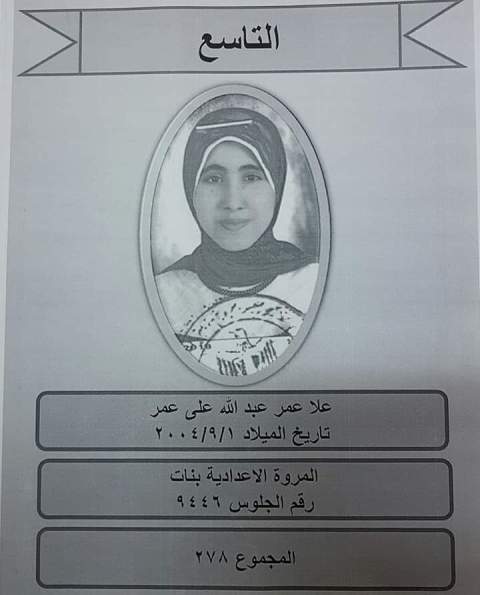 التاسع
علا عمر عبد الله على عمر
تاريخ الميلاد ٢٠٠٤/٩/١
المروة الاعدادية بنات
رقم الجلوس ٩٤٤٦
المجموع ٢٧٨